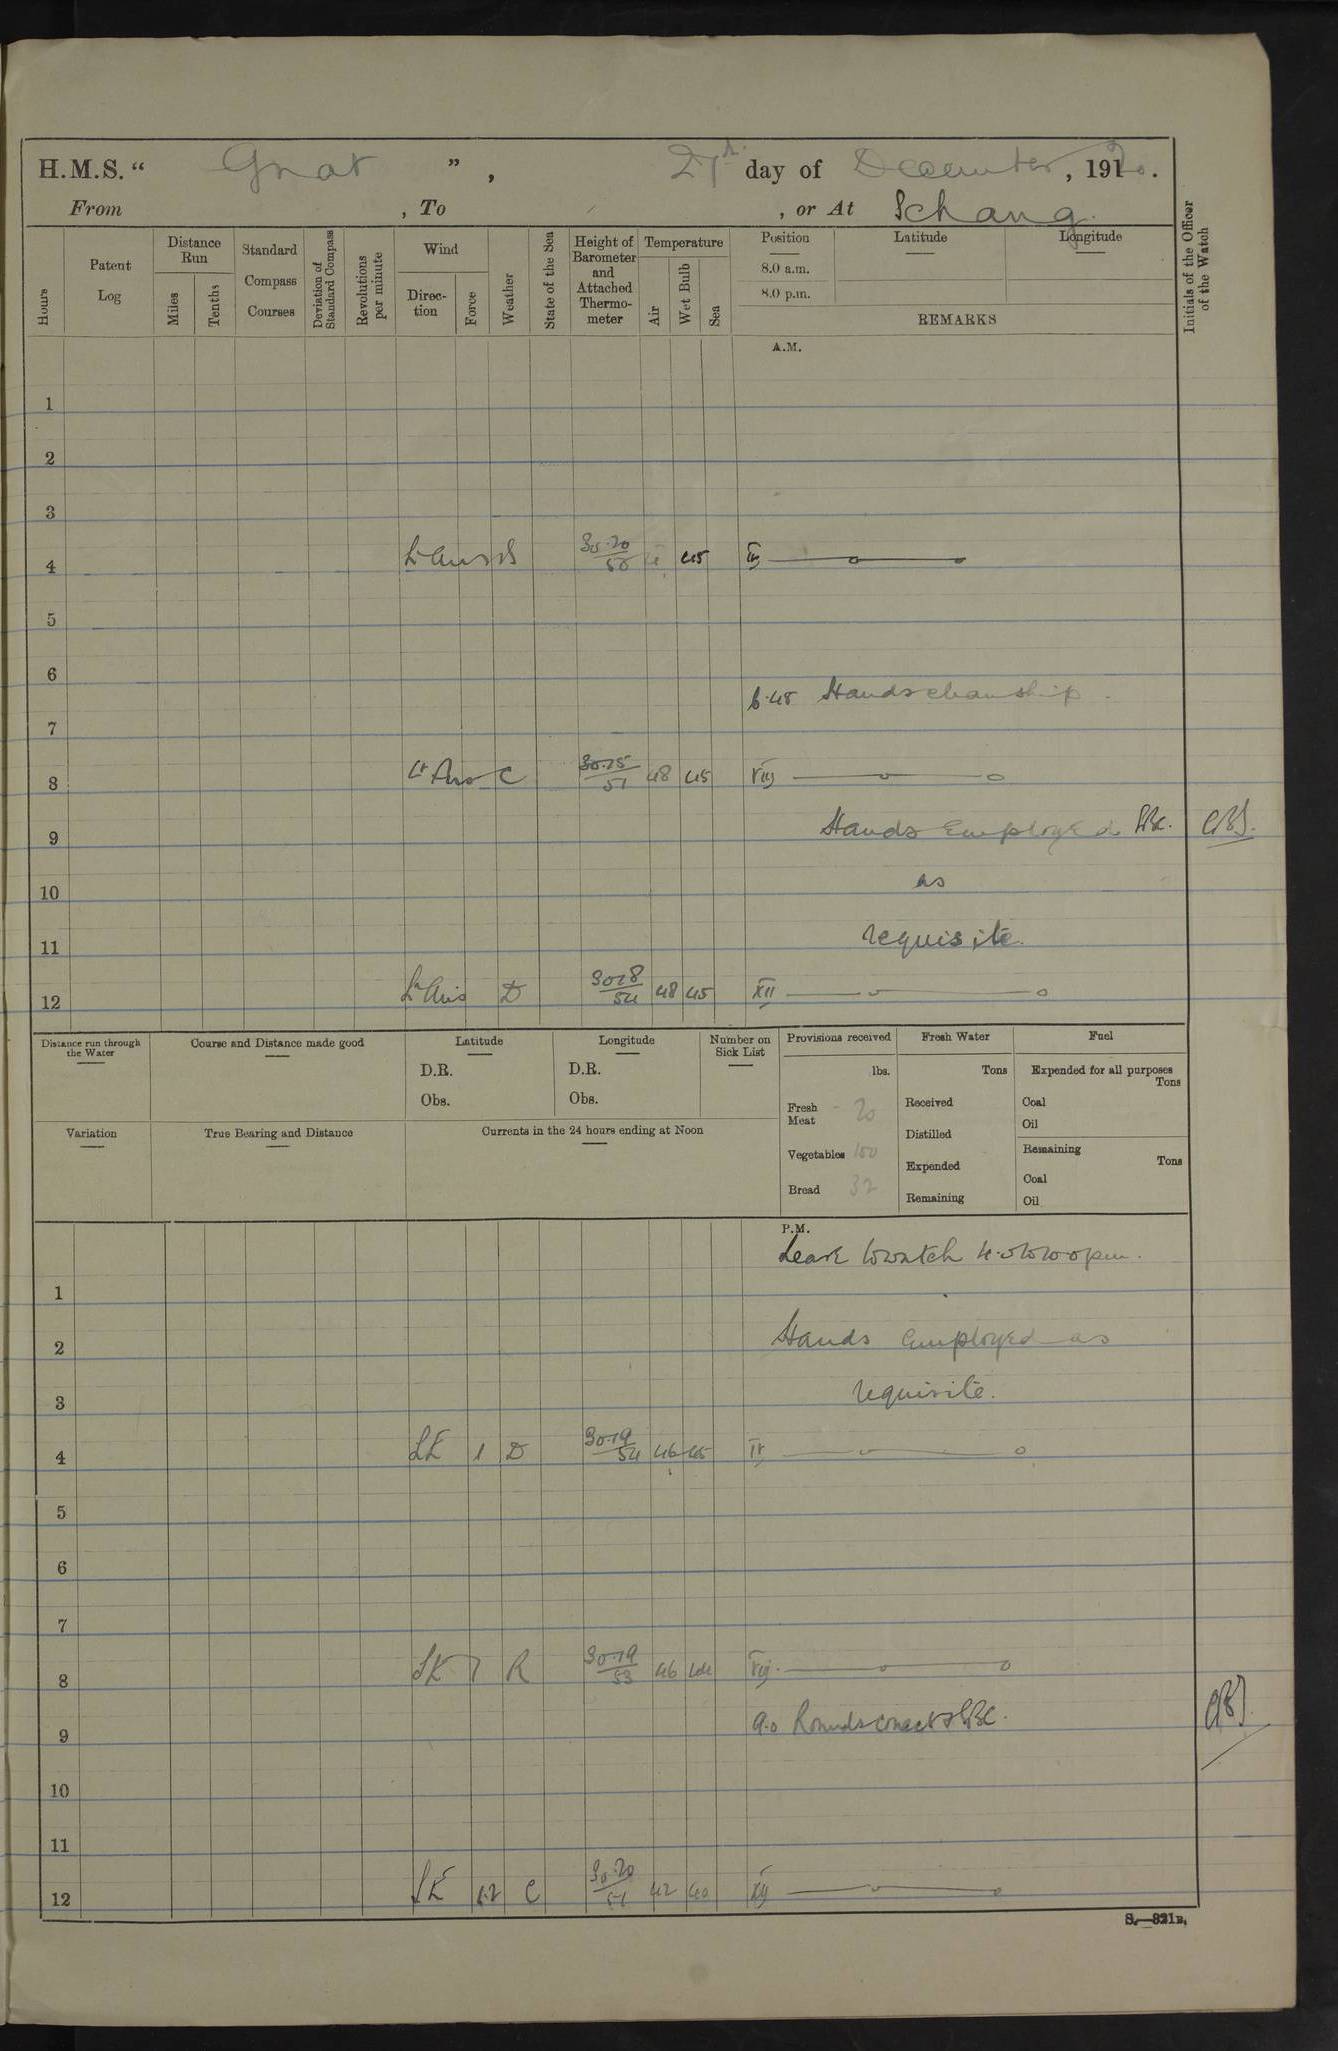 H.M.S. “ Gnat ” , 27th day of December , 1920.
From , To , or At Ichang.
Hours
Patent Log
Distance Run
Miles
Tenths
Standard Compass Courses
Deviation of Standard Compass
Revolutions per minute
Wind
Direction
Force
Weather
State of the Sea
Height of Barometer and Attached Thermometer
Temperature
Air
Wet Bulb
Sea
Position
8.0 a.m.
8.0 p.m.
Latitude
Longitude
REMARKS
Initials of the Officer of the Watch
A.M.
1
2
3
4 Lt Airs B 30.20/50 45 IV
5
6
6.45 Hands clean ship.
7
8 Lt Airs C 30.25/51 48 45 VIII
Hands Employed
9
as
10
requisite.
11
12 Lt Airs D 30.28/54 48 45 XII
Distance run through the Water
Course and Distance made good
Latitude
D.R.
Obs.
Longitude
D.R.
Obs.
Number on Sick List
Provisions received
lbs.
Fresh Meat 20
Vegetables 150
Bread 32
Fresh Water
Tons
Received
Distilled
Expended
Remaining
Fuel
Expended for all purposes
Tons
Coal
Oil
Remaining
Tons
Coal
Oil
Variation
True Bearing and Distance
Currents in the 24 hours ending at Noon
P.M.
Leave to watch
1
Hands employed as
2
requisite.
3
4 SE 1 D 30.19/54 46 45 IV
5
6
7
8 SE 1 R 30.19/53 46 44 VIII
9.0 Rounds correct
9
10
11
12 SE 1.2 C 30.20/51 42 40 XII
S.—321B.